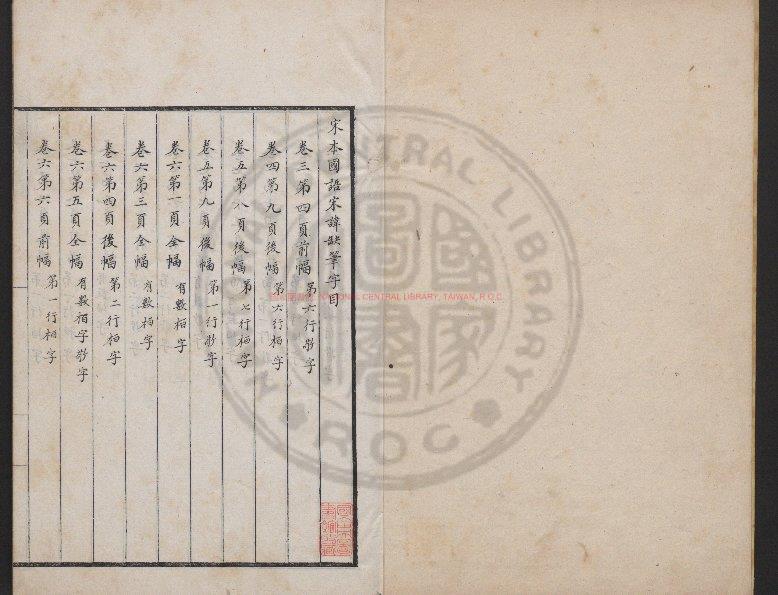 宋本國語宋諱缺筆字目
卷三第四頁前幅 第六行彤字
卷四第九頁後幅 第六行桓字
卷五第八頁後幅 第七行桓字
卷五第九頁後幅 第一行彤字
卷六第一頁全幅 有數桓字
卷六第三頁全幅 有數桓字
卷六第四頁後幅 第二行桓字
卷六第五頁全幅 有數桓字彤字
卷六第六頁前幅 第一行桓字
NATIONAL CENTRAL LIBRARY, TAIWAN, R.O.C
CENTRAL LIBRARY
R.O.C